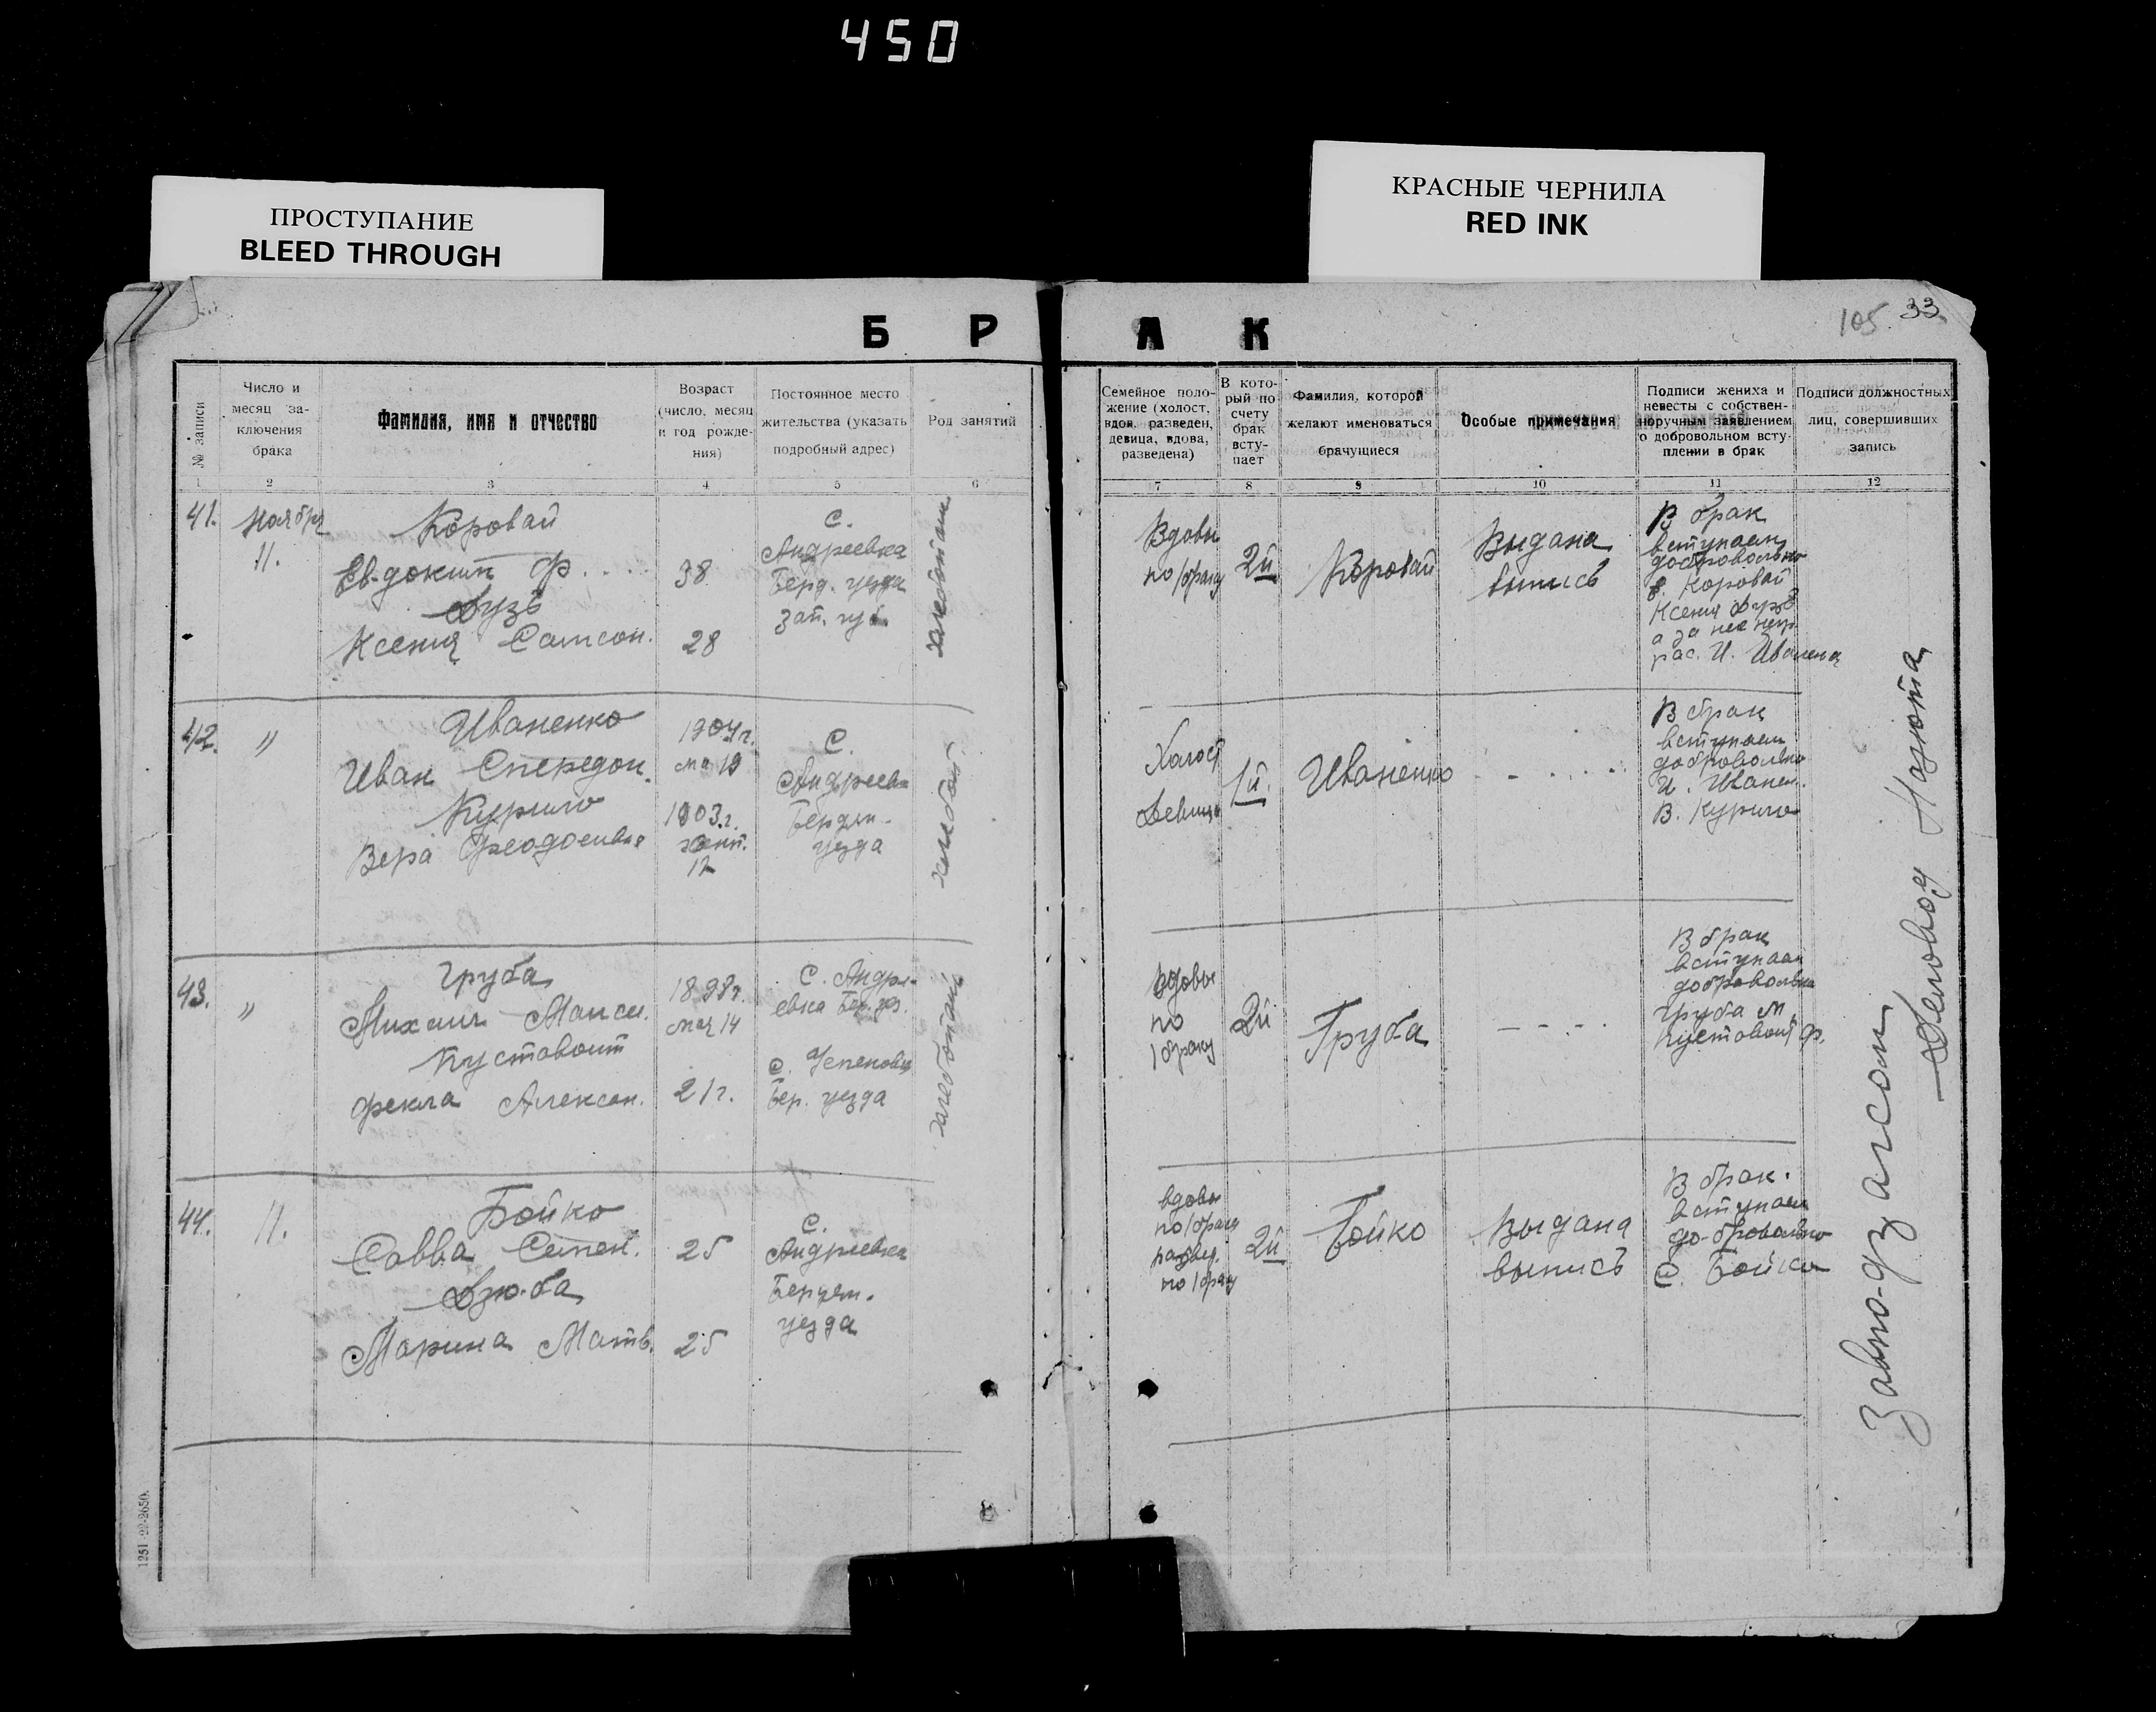 450
ПРОСТУПАНИЕ
BLEED THROUGH
КРАСНЫЕ ЧЕРНИЛА
RED INK
105. 33
Б Р А К
№ записи
Число и
месяц за-
ключения
брака
Фамилия, имя и отчество
Возраст
(число, месяц
и год рожде-
ния)
Постоянное место
жительства (указать
подробный адрес)
Род занятий
Семейное поло-
жение (холост,
вдов, разведен,
девица, вдова,
разведена)
В кото-
рый по
счету
брак
всту-
пает
Фамилия, которой
желают именоваться
брачущиеся
Особые примечания
Подписи жениха и
невесты с собствен-
норучным заявлением
о добровольном всту-
плении в брак
Подписи должностных
лиц, совершивших
запись
1 2 3 4 5 6 7 8 9 10 11 12
41.
Ноября
11.
Коровай
Евдоким Ф. . . .
Дузь
Ксения Самсон.
38
28
С.
Андреевка
Берд. уезда
Зап. губ.
Вдовы
по 1 браку
2й
Коровай
Выдана
выпись
В брак
вступаем
добровольно
Е. Коровай
Ксения Дузь
а за нее негр.
рас. И.
42.
"
Иваненко
Иван Спередон.
Курило
Вера Феодосиевна
1904 г.
мая 19
1903 г.
сент.
17
С.
Андреев-
Бердян.
уезда
Холост
Девица
1й.
Иваненко
В брак
вступаем
добровольно
И. Иванен.
В. Курило
43.
"
Груба
Михаил Макси.
Кустовоит
Фекла Алексан.
1898 г.
мая 14
21 г.
С. Андре-
евка Бер. уез.
Бер. уезда
вдовы
по
1 браку
2й
Груба
В брак
вступаем
добровольно
Груба М.
Кустовоит Ф.
44.
11.
Бойко
Савва Семен.
Дзюба
Марина Матв.
25
25
С.
Андреевка
Бердян.
уезда
вдовы
по 1 браку
развед.
по 1 браку
2й
Бойко
Выдана
выпись
В брак
вступаем
добровольно
С. Бойко
Завпо-дзагсом
Деловод
1251-22-2650.